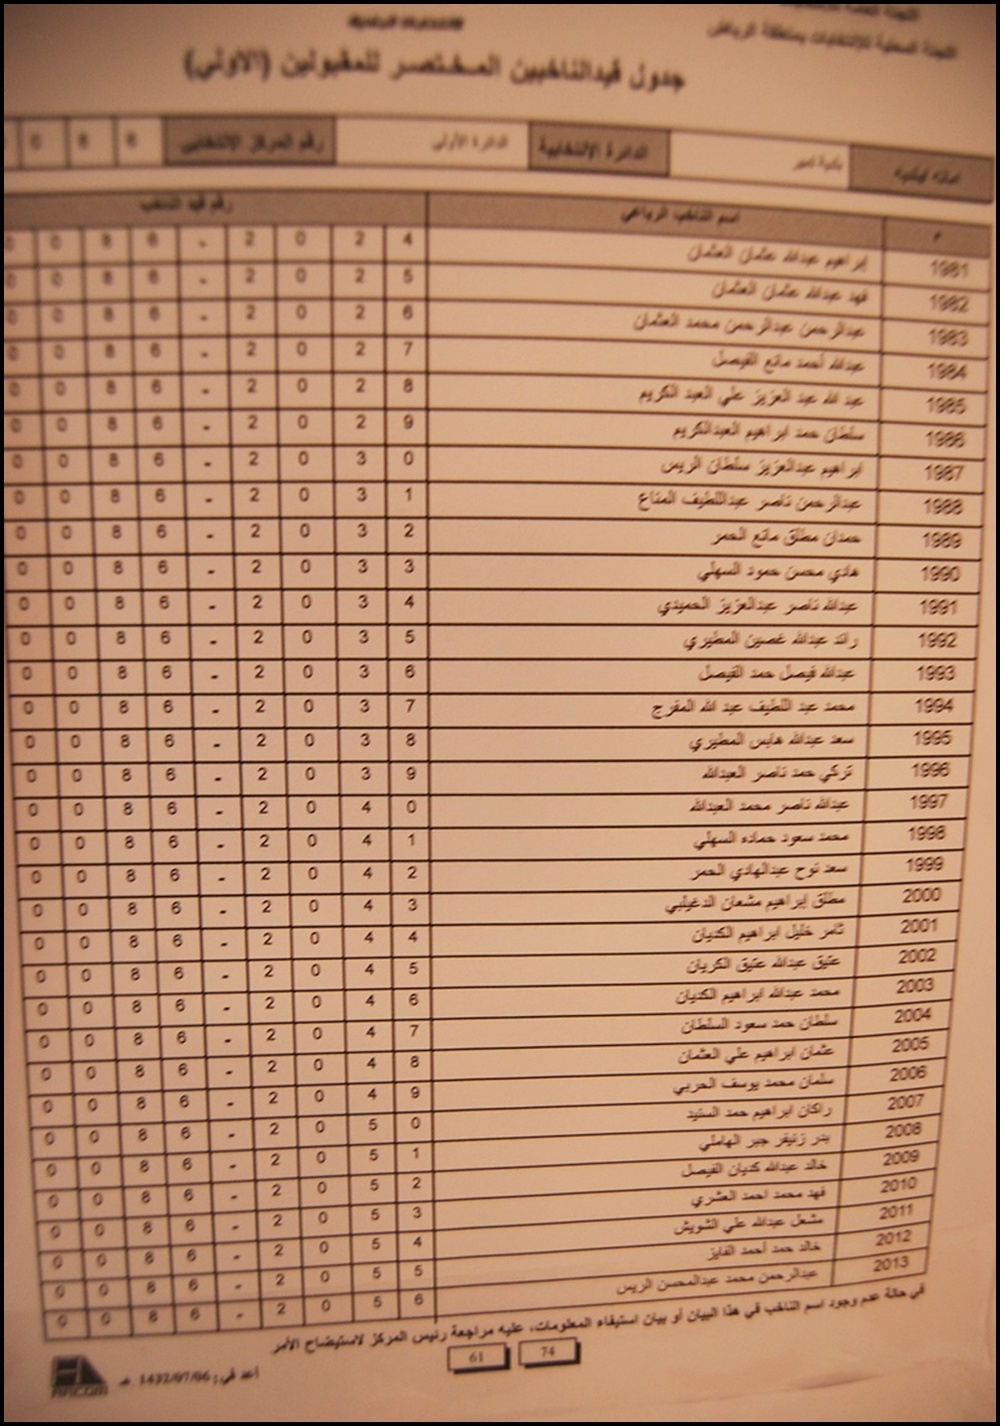 اللجنة العامة للانتخابات
اللجنة المحلية للانتخابات بمنطقة الرياض
جدول قيد الناخبين المختصر للمقبولين (الاولي)
بلدية تمير الدائرة الإنتخابية الدائرة الأولى رقم المركز الإنتخابي 6 8 0
م اسم الناخب الرباعي رقم قيد الناخب
1981 إبراهيم عبدالله عثمان العثمان 0 0 8 6 - 2 0 2 4
1982 فهد عبدالله عثمان العثمان 0 0 8 6 - 2 0 2 5
1983 عبدالرحمن عبدالرحمن محمد العثمان 0 0 8 6 - 2 0 2 6
1984 عبدالله أحمد مانع الفيصل 0 0 8 6 - 2 0 2 7
1985 عبد الله عبد العزيز علي العبد الكريم 0 0 8 6 - 2 0 2 8
1986 سلطان حمد ابراهيم العبدالكريم 0 0 8 6 - 2 0 2 9
1987 ابراهيم عبدالعزيز سلطان الريس 0 0 8 6 - 2 0 3 0
1988 عبدالرحمن ناصر عبداللطيف المناع 0 0 8 6 - 2 0 3 1
1989 حمدان مطلق مانع الحمر 0 0 8 6 - 2 0 3 2
1990 هادي محسن حمود السهلي 0 0 8 6 - 2 0 3 3
1991 عبدالله ناصر عبدالعزيز الحميدي 0 0 8 6 - 2 0 3 4
1992 رائد عبدالله غصين المطيري 0 0 8 6 - 2 0 3 5
1993 عبدالله فيصل حمد الفيصل 0 0 8 6 - 2 0 3 6
1994 محمد عبد اللطيف عبد الله المفرج 0 0 8 6 - 2 0 3 7
1995 سعد عبدالله هابس المطيري 0 0 8 6 - 2 0 3 8
1996 تركي حمد ناصر العبدالله 0 0 8 6 - 2 0 3 9
1997 عبدالله ناصر محمد العبدالله 0 0 8 6 - 2 0 4 0
1998 محمد سعود حماده السهلي 0 0 8 6 - 2 0 4 1
1999 سعد نوح عبدالهادي الحمر 0 0 8 6 - 2 0 4 2
2000 مطلق إبراهيم مشعان الدغيلبي 0 0 8 6 - 2 0 4 3
2001 ثامر خليل ابراهيم الكديان 0 0 8 6 - 2 0 4 4
2002 عتيق عبدالله عتيق الكريان 0 0 8 6 - 2 0 4 5
2003 محمد عبدالله ابراهيم الكديان 0 0 8 6 - 2 0 4 6
2004 سلطان حمد سعود السلطان 0 0 8 6 - 2 0 4 7
2005 عثمان ابراهيم علي العثمان 0 0 8 6 - 2 0 4 8
2006 سلمان محمد يوسف الحربي 0 0 8 6 - 2 0 4 9
2007 راكان ابراهيم حمد السنيد 0 0 8 6 - 2 0 5 0
2008 بدر زنيفر جبر الهاملي 0 0 8 6 - 2 0 5 1
2009 خالد عبدالله كديان الفيصل 0 0 8 6 - 2 0 5 2
2010 فهد محمد احمد العشري 0 0 8 6 - 2 0 5 3
2011 مشعل عبدالله علي الشويش 0 0 8 6 - 2 0 5 4
2012 خالد حمد أحمد الفايز 0 0 8 6 - 2 0 5 5
2013 عبدالرحمن محمد عبدالمحسن الريس 0 0 8 6 - 2 0 5 6
في حالة عدم وجود اسم الناخب في هذا البيان أو بيان استيفاء المعلومات، عليه مراجعة رئيس المركز لاستيضاح الأمر
74 61
أعد في: 1432/07/06 هـ